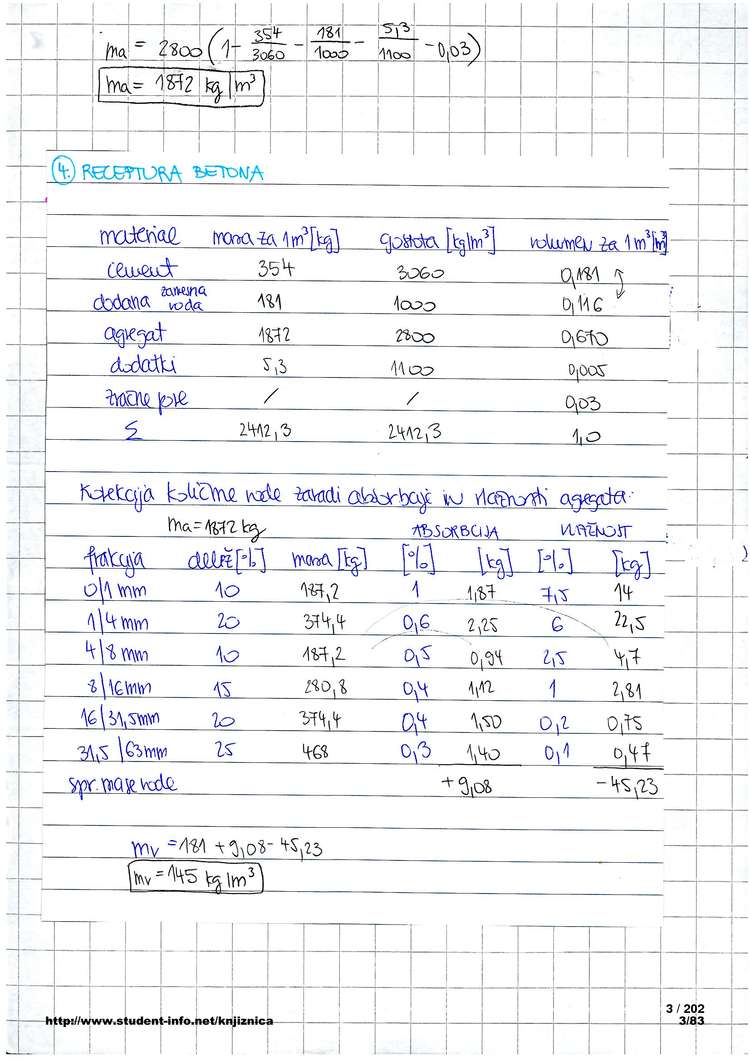 ma = 2800 (1 - 354/3060 - 181/1000 - 5,3/1100 - 0,03)
ma = 1872 kg/m³
4. RECEPTURA BETONA
material masa za 1m³ [kg] gostota [kg/m³] volumen za 1m³ [m³]
cement 354 3060 0,181
dodana zamesna voda 181 1000 0,116
agregat 1872 2800 0,670
dodatki 5,3 1100 0,005
zračne pore / / 0,03
Σ 2412,3 2412,3 1,0
Korekcija količine vode zaradi absorbcije in vlažnosti agregata:
ma = 1872 kg ABSORBCIJA VLAŽNOST
frakcija delež [%] masa [kg] [%] [kg] [%] [kg]
0/1 mm 10 187,2 1 1,87 7,5 14
1/4 mm 20 374,4 0,6 2,25 6 22,5
4/8 mm 10 187,2 0,5 0,94 2,5 4,7
8/16 mm 15 280,8 0,4 1,12 1 2,81
16/31,5mm 20 374,4 0,4 1,50 0,2 0,75
31,5/63mm 25 468 0,3 1,40 0,1 0,47
spr. mase vode +9,08 -45,23
mv = 181 + 9,08 - 45,23
mv = 145 kg/m³
3 / 202
http://www.student-info.net/knjiznica 3/83